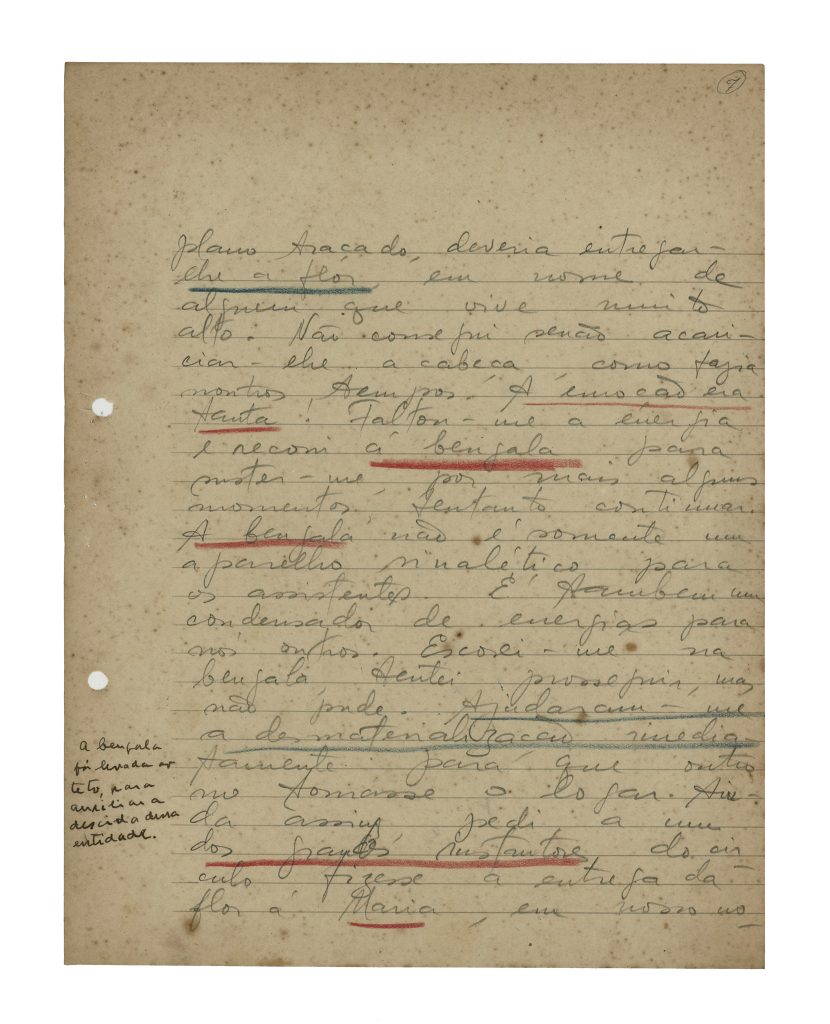 7
plano traçado, deveria entregar-
lhe a flôr, em nome de
alguem que vive muito
alto. Não consegui senão acari-
ciar-lhe a cabeça, como fazia
noutros tempos. A emoção era
tanta! Faltou-me a energia
e recorri á bengala para
suster-me, por mais alguns
momentos. Tentanto continuar.
A bengala não é somente um
aparelho sinalético para
os assistentes. É tambem um
condensador de energias para
nós outros. Escorei-me na
bengala, tentei prosseguir, mas
não pude. Ajudaram-me
a desmaterialização imedia-
tamente para que outro
me tomasse o logar. Ain-
da assim, pedi a um
dos grandes sustentores do cir-
culo fizesse a entrega da
flor á Maria, em nosso no-
A bengala
foi levada ao
teto, para
auxiliar a
descida dessa
entidade.